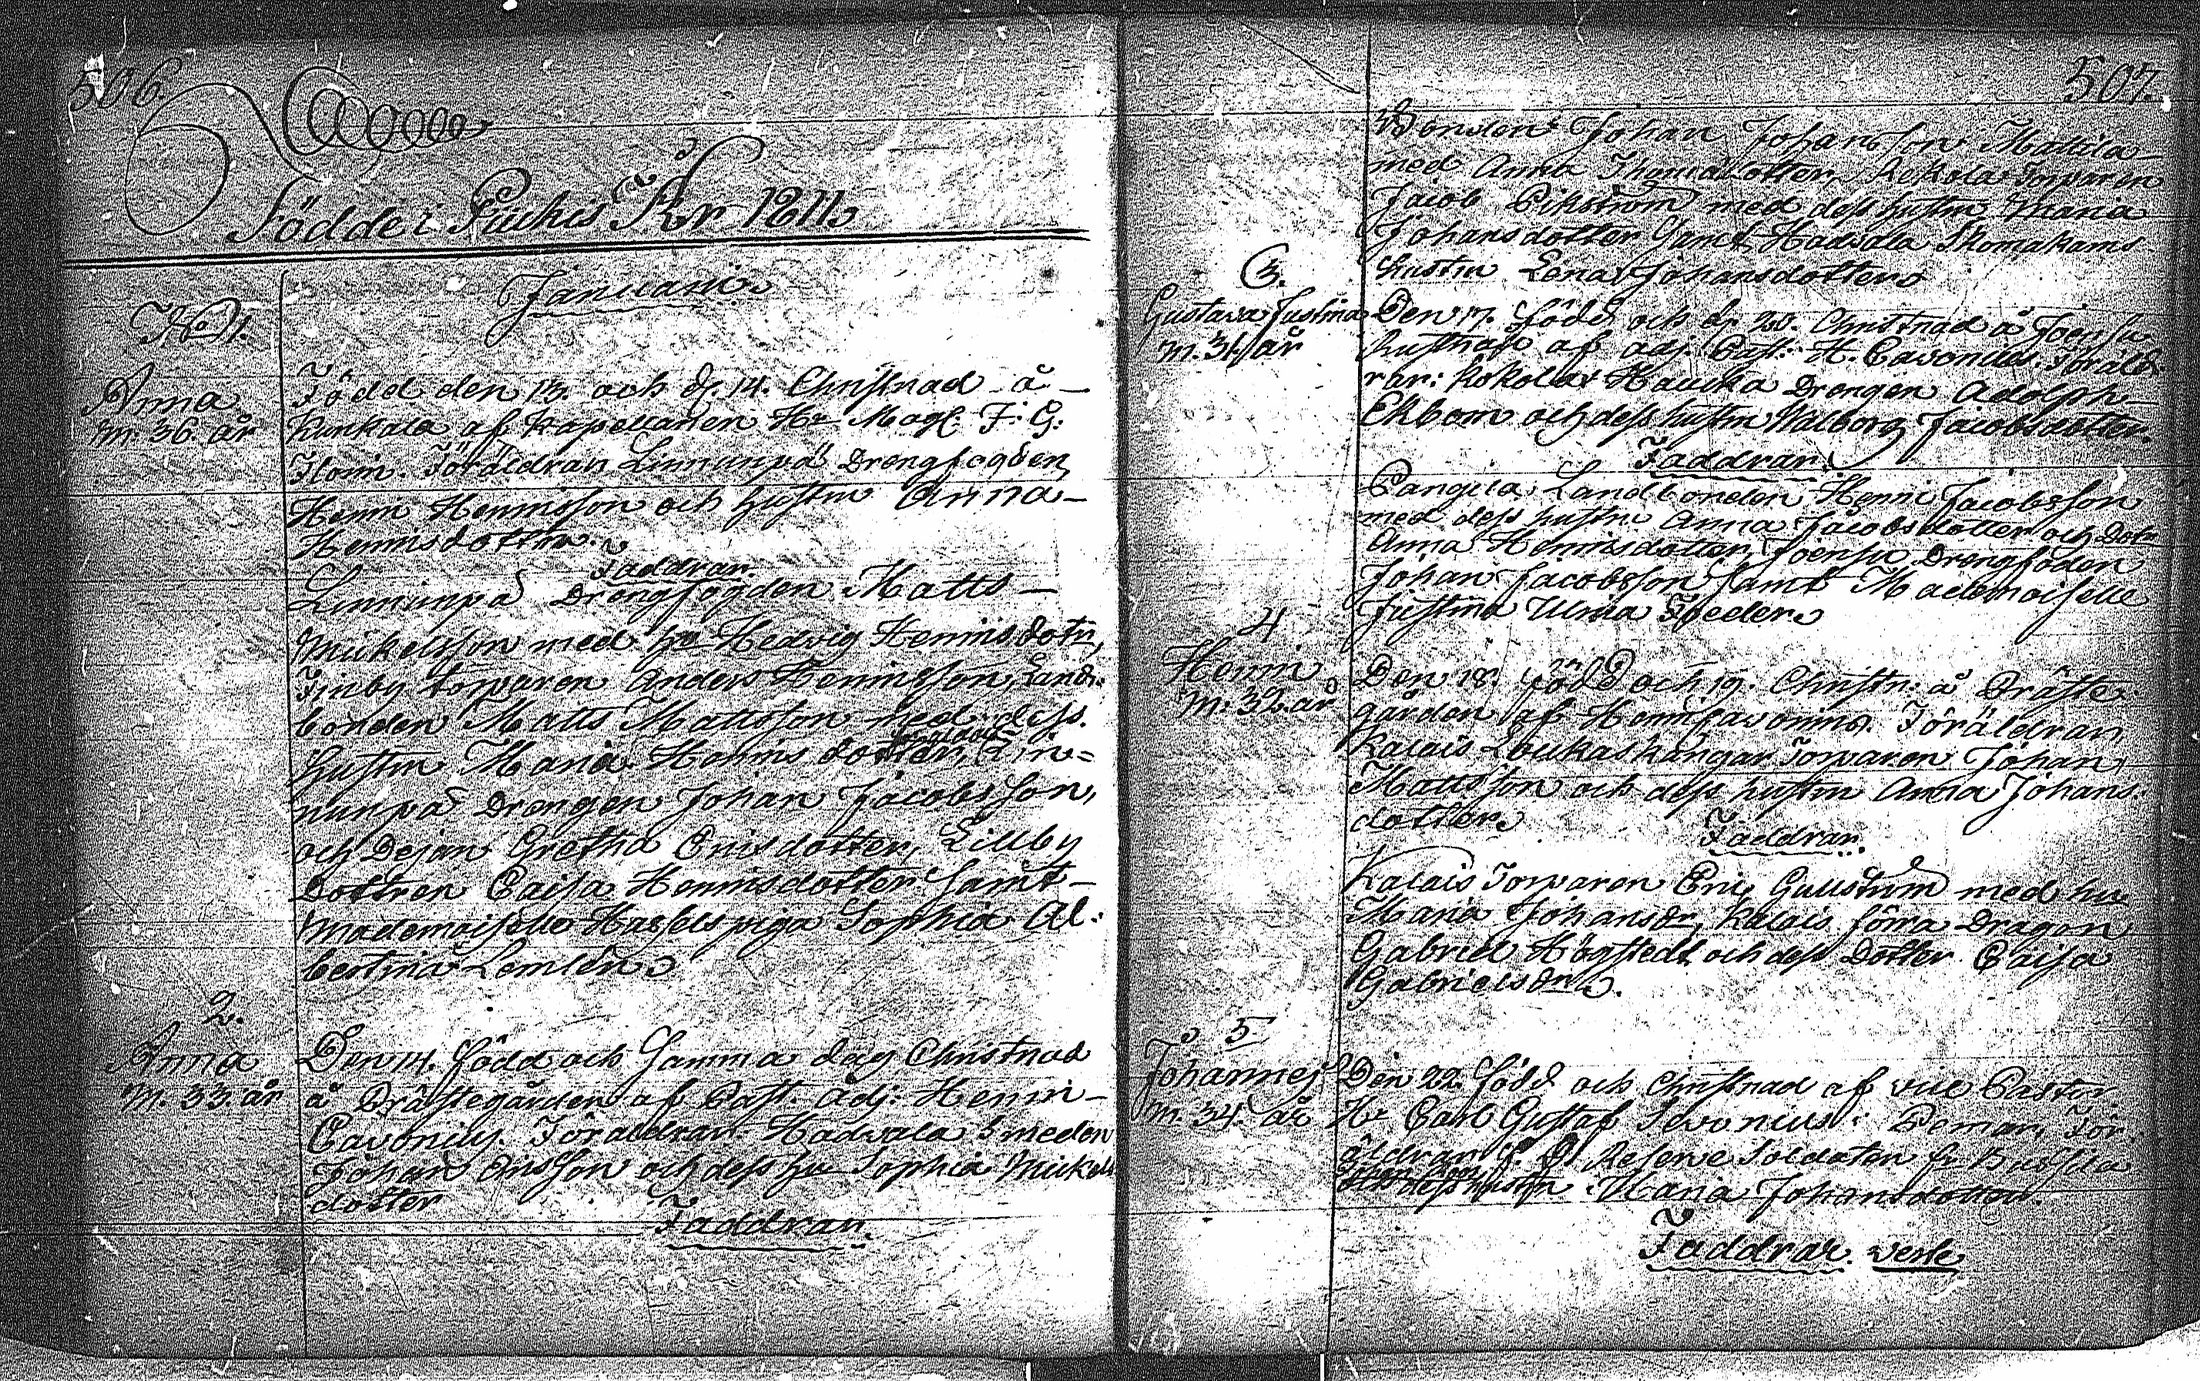 506.
Födde i Piikis År 1811.
Januari.
No 1.
Anna
m. 36. år
Född den 13. och d. 14. Christnad å
Runkola af Kapellanen Hr Mag. F: G:
Florin. Föräldrar Linnunpä Drengfogden
Henric Henricsson och hustru Anna
Henricsdotter.
Faddrar.
Linnunpä Drengfogden Matts
Mickelsson med hu Hedvig Henricsdotr,
torparen Anders Henricsson, Land-
bonden Matts Mattsson med dess
hustru Maria Henricsdotter, Lin=
nunpä Drengen Johan Jacobsson,
och Dejan Gretha Ericsdotter, Lillby
Dottren Caisa Henricsdotter samt
Mademoiselle Hassels piga Sophia Al-
bertina Lemlén
2.
Anna
m. 33. år
Den 14. född och samma dag Christnad
å Prästegården af Past. Adj: Henric
Pavonius. Föräldrar Hadvala Smeden
Johan Ericsson och dess hu Sophia Mickels
dotter
Faddrar.
507.
Bonden Johan Johansson Mattila
med Anna Thomædotter, Kokola Torparen
Jacob Ekström med dess hustru Maria
Johansdotter samt Hadvala
hustru Lena Johansdotter
3.
Gustava Justina
m. 31. år
Den 17. född och d. 20. Christnad å Joensu
af adj. Past: H. Pavonius. Föräld-
rar: Kokola Hauska Drengen Adolph
Ekbom och dess hustru Walborg Jacobsdotter.
Faddrar.
Pangila Landbonden Henric Jacobsson
med dess hustru Anna Jacobsdotter och Dotr
Anna Henricsdotter, Joensu Drengfoden
Johan Jacobsson samt Mademoiselle
Justina Ulrica
4
Henric
m. 32. år
Den 18. född och 19. Christn: å Präste
gården af Henric Pavonius. Föräldrar
Kalais Loukaskangar Torparen Johan
Mattsson och dess hustru Anna Johans
dotter
Faddrar.
Kalais Torparen Eric Gullström med hu
Maria Johansdr, Kalais förra Dragon
Gabriel Högstedt och dess Dotter Caisa
Gabrielsdr.
5
Johannes
m. 34. år
Den 22. född och Christnad af vice Pastor
Hr Carl Gustaf i Pemar, För-
äldrar Reserve Soldaten fr
och dess hustru Maria Johansdotter.
Faddrar verte